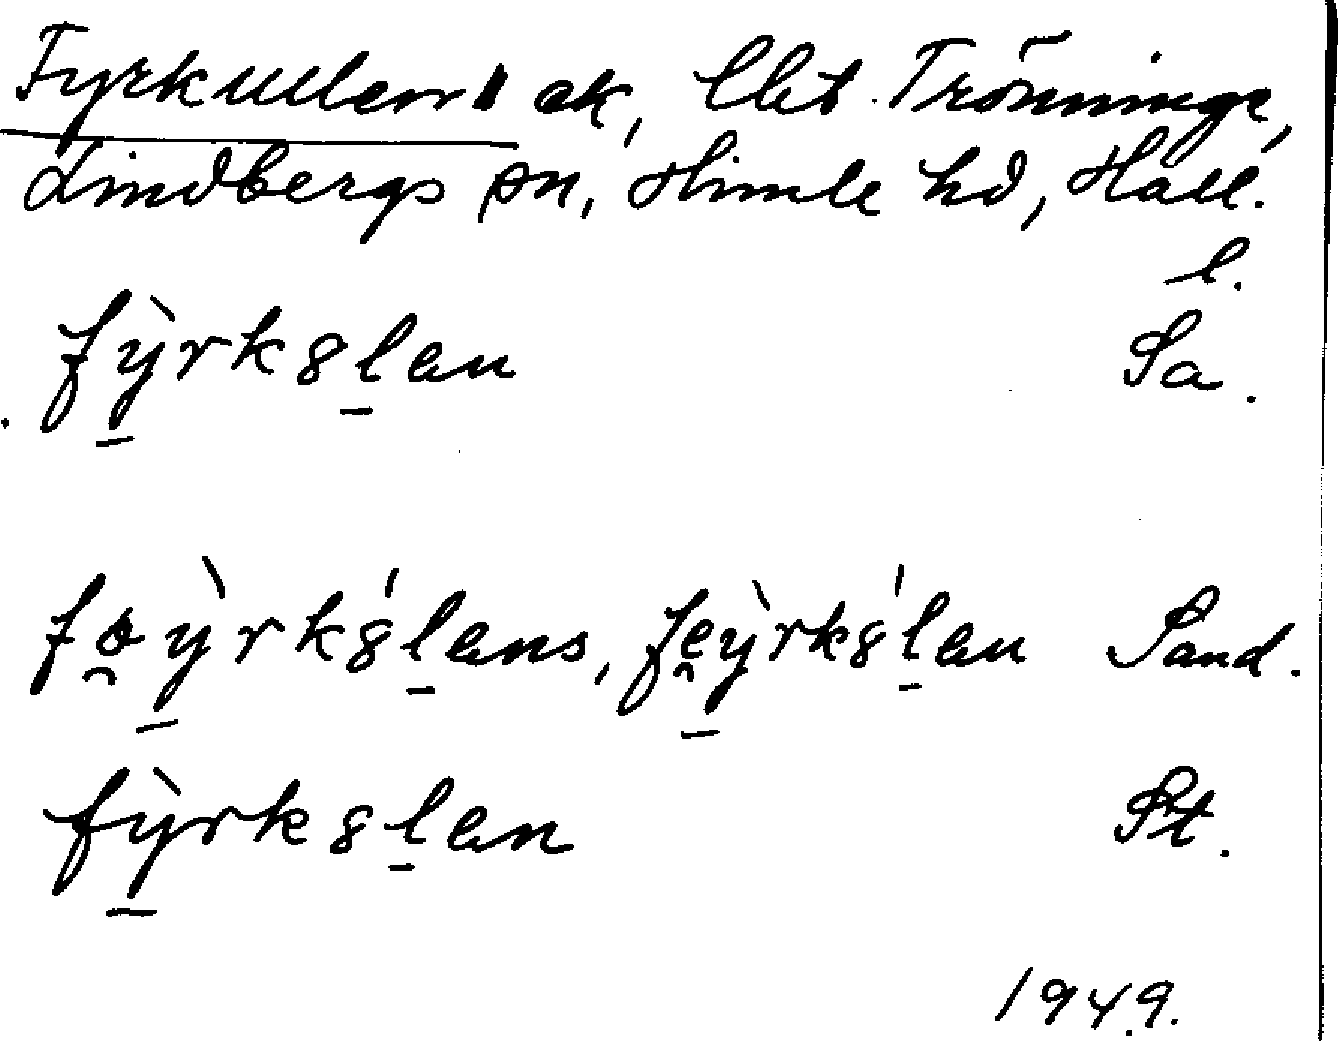 Fyrkullen ak, Ubt Trönninge,
Lindbergs sn, Himle hd, Hall.
l.
fỳ̠rk8l̠an Sa.
fo̯ỳ̠rk8́l̠ans, fe̯ỳ̠rk8́l̠an Sand.
fỳ̠rk8l̠an St.
1949.